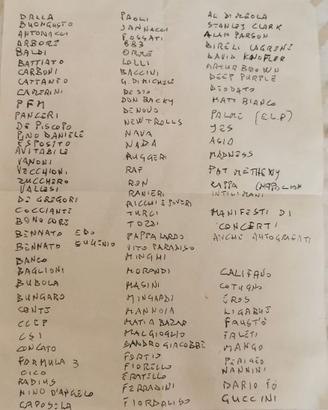 DALLA
BUONGUSTO
ANTONACCI
ARBORE
BALDI
BATTIATO
CARBONI
CATTANEO
CAPTERINI
PFM
PANCERI
DE PISCOPO
PINO DANIELE
ESPOSITO
AVITABILE
VANONI
VECCHIONI
ZUCCHERO
VALLESI
DE GREGORI
COCCIANTE
BONO CORE
BENNATO EDO
BENNATO EUGENIO
BANCO
BAGLIONI
BUBOLA
BUNGARO
CONTE
CCCP
CSI
CONCATO
FORMULA 3
CICO
RADIUS
NINO D'ANGELO
CAPOSELA
PAOLI
JANNACCI
FOSSATI
883
ORME
LOLLI
BACCINI
G. DI MICHELE
DE SIO
DON BACKY
DENOVO
NEW TROLLS
NAVA
NADA
RUGGERI
RAF
RON
RANIERI
RICCHI E POVERI
TURCI
TOZZI
PAPPALARDO
VITO PARADISO
MINGHI
MORANDI
MASINI
MINGARDI
MANNOIA
MATIA BAZAR
MALGIOGLIO
SANDRO GIACOBBE
FORTIO
FIORELLO
ERRATELO
FERRADINI
FIORDALISO
AL DI MEOLA
STANLEY CLARK
ALAN PARSON
BIRELI LAGRENE
DAVID KNOPFLER
ARTUR BROWN
DEEP PURPLE
DEODATO
MATT BIANCO
PALMER (E.L.P)
YES
ASIA
MADNESS
PAT METHENY
ZAPPA (NAPOLI
INTILLIMANI
MANIFESTI DI
CONCERTI
ANCHE AUTOGRAFATI
CALIFANO
COTUGNO
EROS
LIGABUE
FAUSTO
MANGO
PERIGEO
NANNINI
DARIO FO
GUCCINI